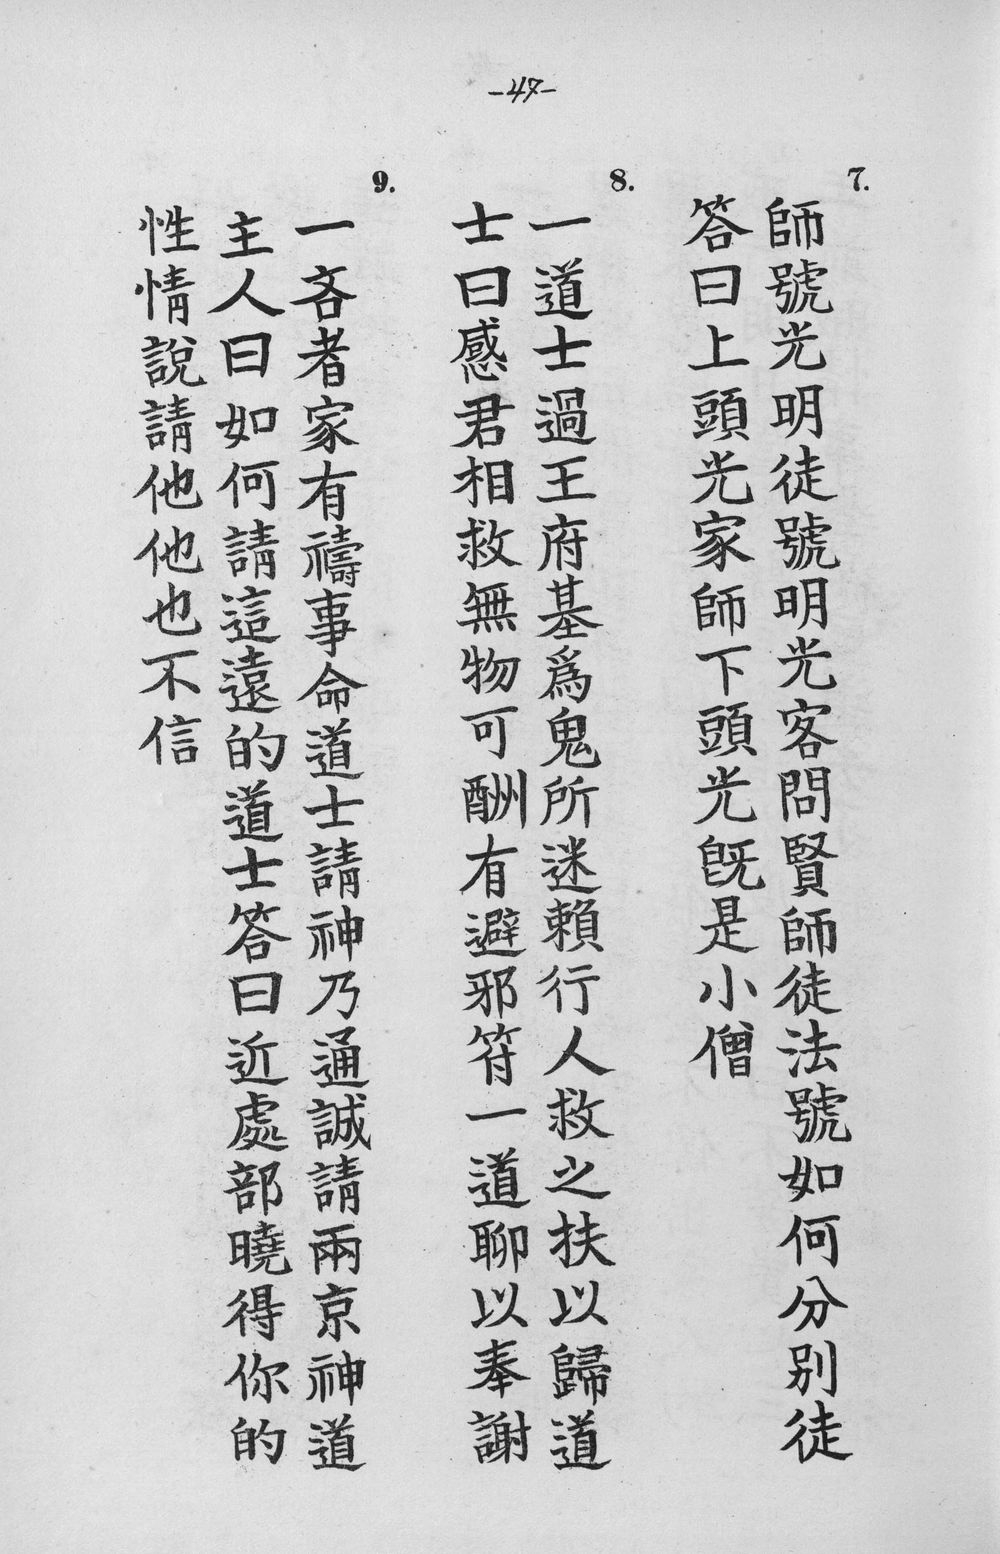 -47-
7.
師號光明徒號明光客問賢師徒法號如何分别徒
答曰上頭光家師下頭光旣是小僧
8.
一道士過王府基爲鬼所迷賴行人救之扶以歸道
士曰感君相救無物可酬有避邪符一道聊以奉謝
9.
一吝者家有禱事命道士請神乃通誠請兩京神道
主人曰如何請這遠的道士答曰近處部曉得你的
性情說請他他也不信